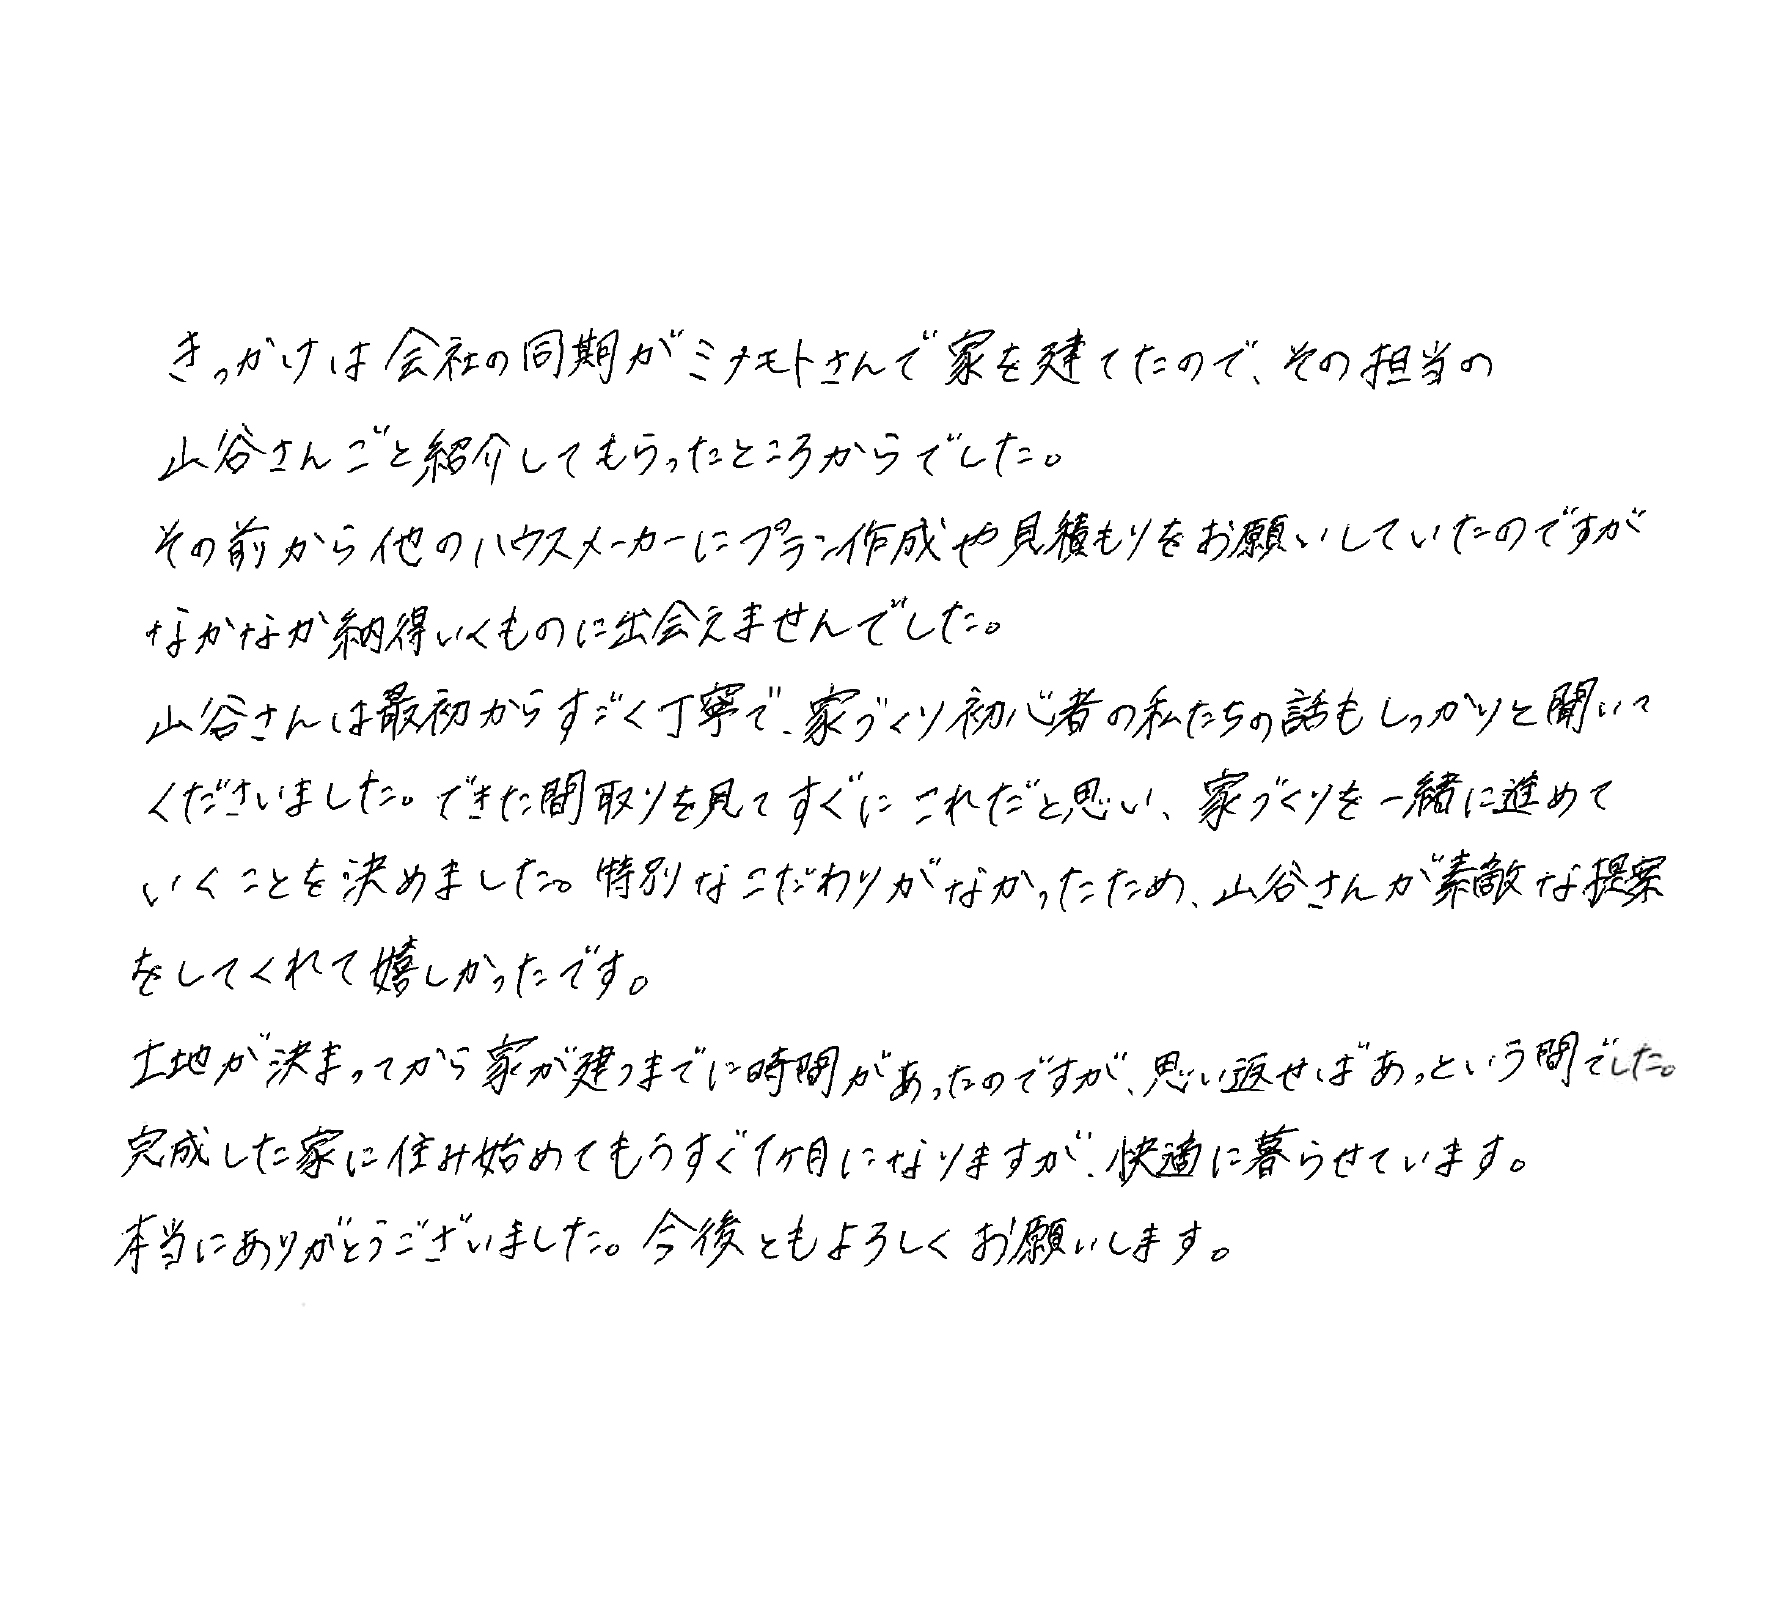 きっかけは会社の同期がミナモトさんで家を建てたので、その担当の
山谷さんごと紹介してもらったところからでした。
その前から他のハウスメーカーにプラン作成や見積もりをお願いしていたのですが
なかなか納得いくものに出会えませんでした。
山谷さんは最初からすごく丁寧で、家づくり初心者の私たちの話もしっかりと聞いて
くださいました。できた間取りを見てすぐにこれだと思い、家づくりを一緒に進めて
いくことを決めました。特別なこだわりがなかったため、山谷さんが素敵な提案
をしてくれて嬉しかったです。
土地が決まってから家が建つまでに時間があったのですが、思い返せばあっという間でした。
完成した家に住み始めてもうすぐ1ヶ月になりますが、快適に暮らせています。
本当にありがとうございました。今後ともよろしくお願いします。